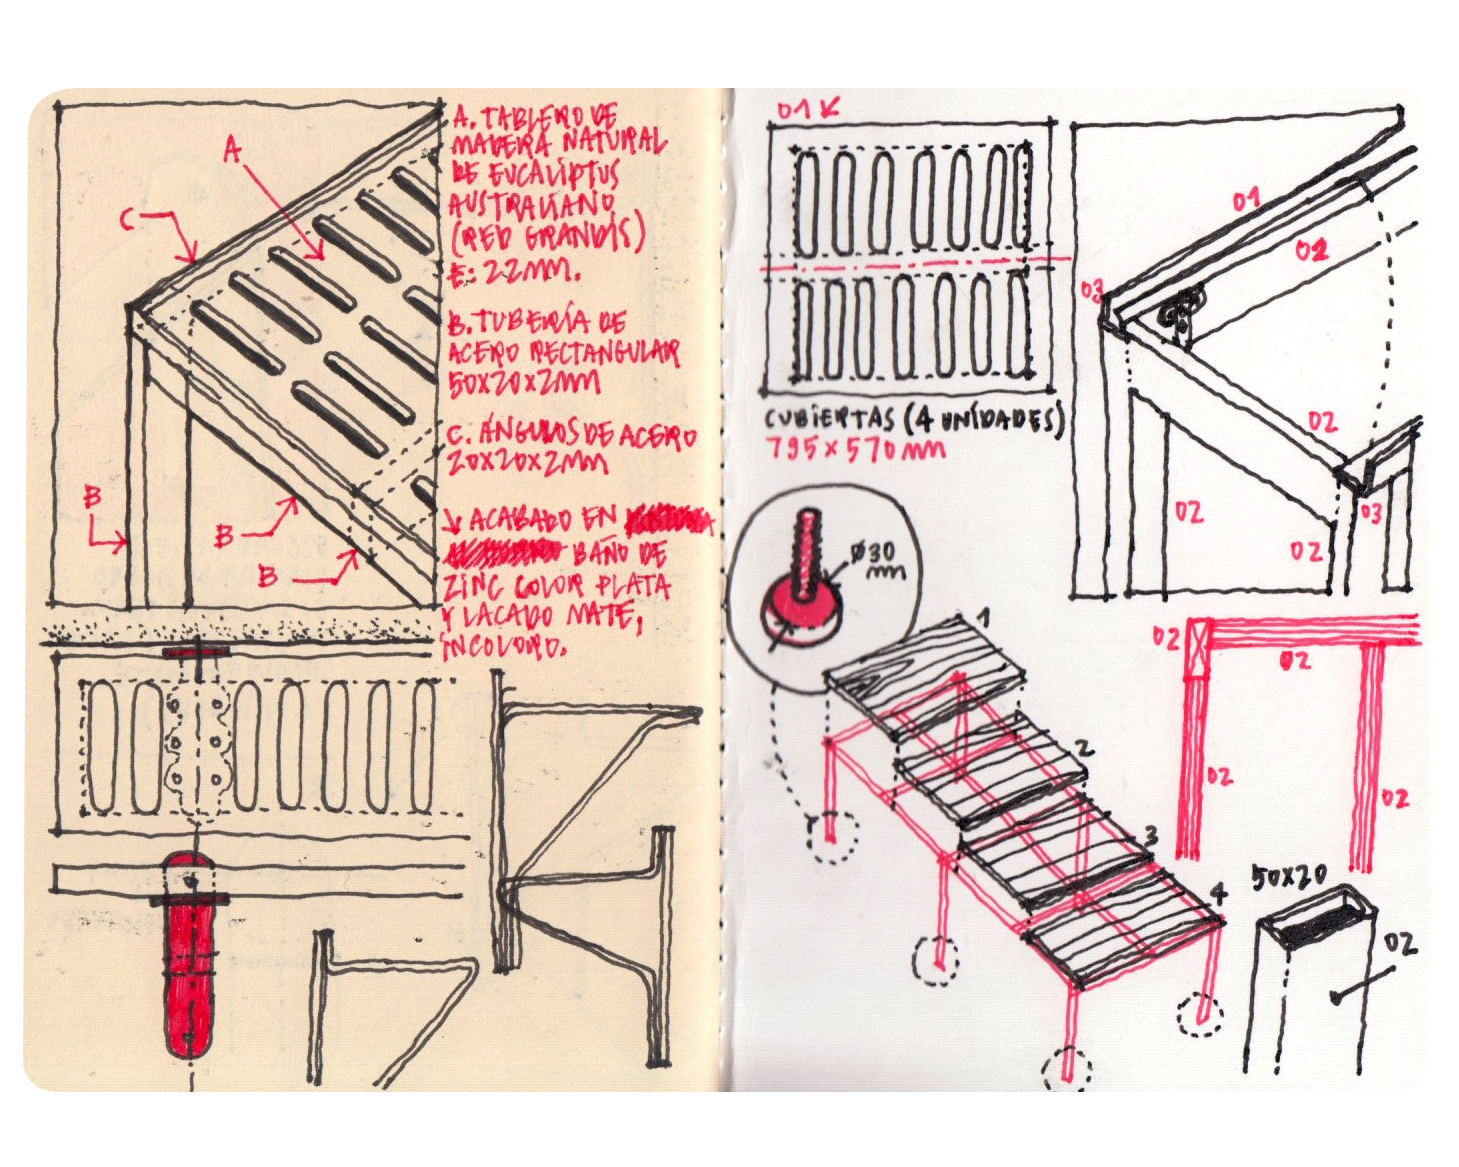 A
C
B
B
B
A. TABLERO DE
MADERA NATURAL
DE EUCALIPTUS
AUSTRALIANO
(RED GRANDIS)
E: 22MM.
B. TUBERÍA DE
ACERO RECTANGULAR
50X20X2MM
C. ÁNGULOS DE ACERO
20X20X2MM
↘ ACABADO EN
BAÑO DE
ZINC COLOR PLATA
Y LACADO MATE,
INCOLORO.
01
CUBIERTAS (4 UNIDADES)
795 X 570 MM
01
02
03
02
02
02
03
Ø30
MM
1
2
3
4
02
02
02
02
50X20
02